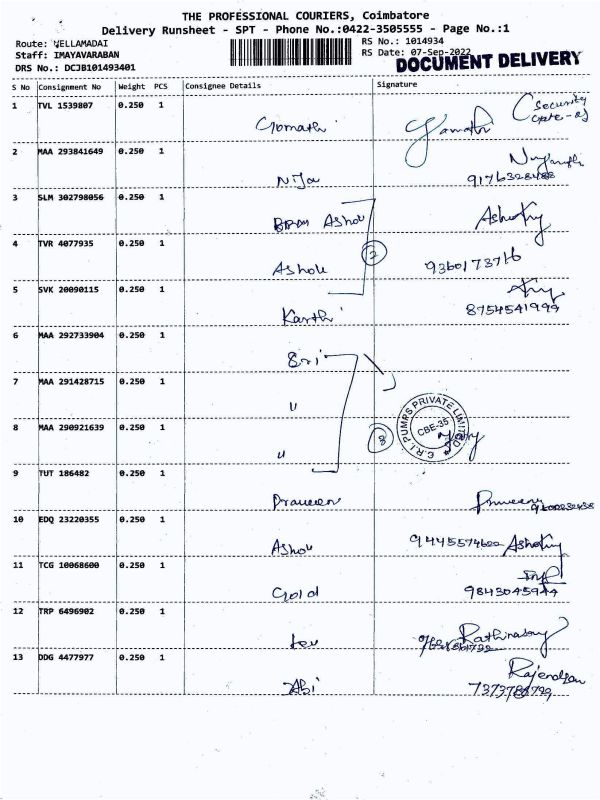 THE PROFESSIONAL COURIERS, Coimbatore
Delivery Runsheet - SPT - Phone No.:0422-3505555 - Page No.:1
Route: VELLAMADAI
RS No.: 1014934
Staff: IMAYAVARABAN
RS Date: 07-Sep-2022
DOCUMENT DELIVERY
DRS No.: DCJB101493401
S No Consignment No Weight PCS Consignee Details Signature
1 TVL 1539807 0.250 1 Gomathi Gomathi Security
2 MAA 293841649 0.250 1
3 SLM 302798056 0.250 1 Ashok
4 TVR 4077935 0.250 1 Ashok 9360173716
2
5 SVK 20090115 0.250 1 Karthi 8754541999
6 MAA 292733904 0.250 1 Sri
7 MAA 291428715 0.250 1 "
8 MAA 290921639 0.250 1 " 3
C.R.I. PUMPS PRIVATE LIMITED
CBE-35
9 TUT 186482 0.250 1 Praveen Praveen
10 EDQ 23220355 0.250 1 Ashok
11 TCG 10068600 0.250 1 Gold 9843045944
12 TRP 6496902 0.250 1
13 DDG 4477977 0.250 1 Abi Rajendran